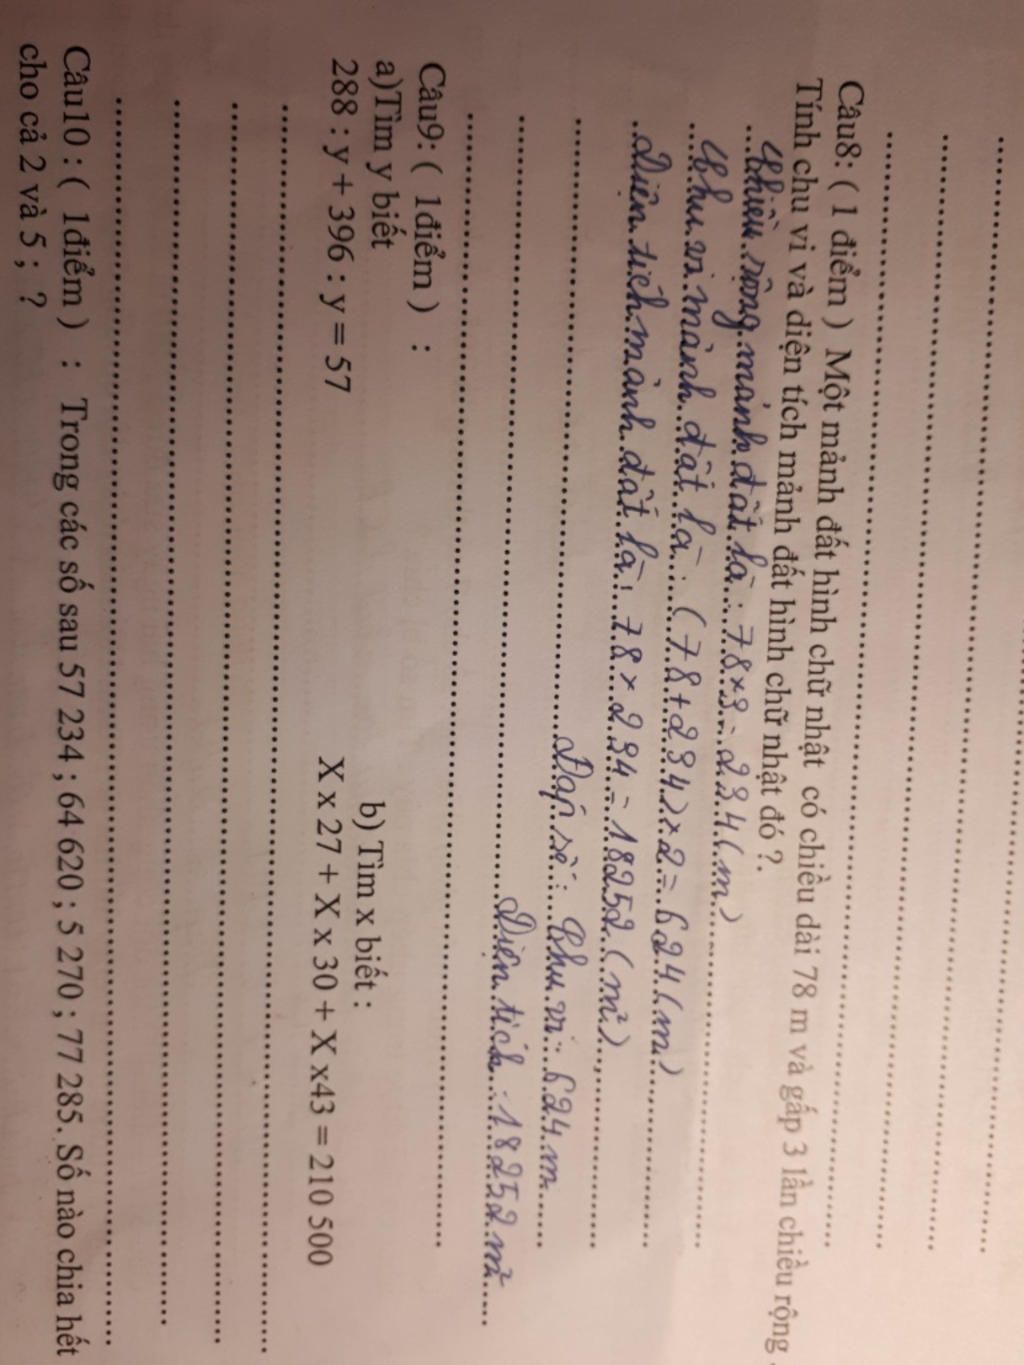 Câu8: ( 1 điểm ) Một mảnh đất hình chữ nhật có chiều dài 78 m và gấp 3 lần chiều rộng .
Tính chu vi và diện tích mảnh đất hình chữ nhật đó ?.
Chiều rộng mảnh đất là : 78 x 3 = 234 (m)
Chu vi mảnh đất là : (78 + 234) x 2 = 624 (m)
Diện tích mảnh đất là : 78 x 234 = 18252 (m²)
Đáp số : Chu vi : 624 m
Diện tích : 18252 m²
Câu9: ( 1điểm ) :
a)Tìm y biết b) Tìm x biết :
288 : y + 396 : y = 57 X x 27 + X x 30 + X x43 = 210 500
Câu10 : ( 1điểm ) : Trong các số sau 57 234 ; 64 620 ; 5 270 ; 77 285. Số nào chia hết
cho cả 2 và 5 ; ?